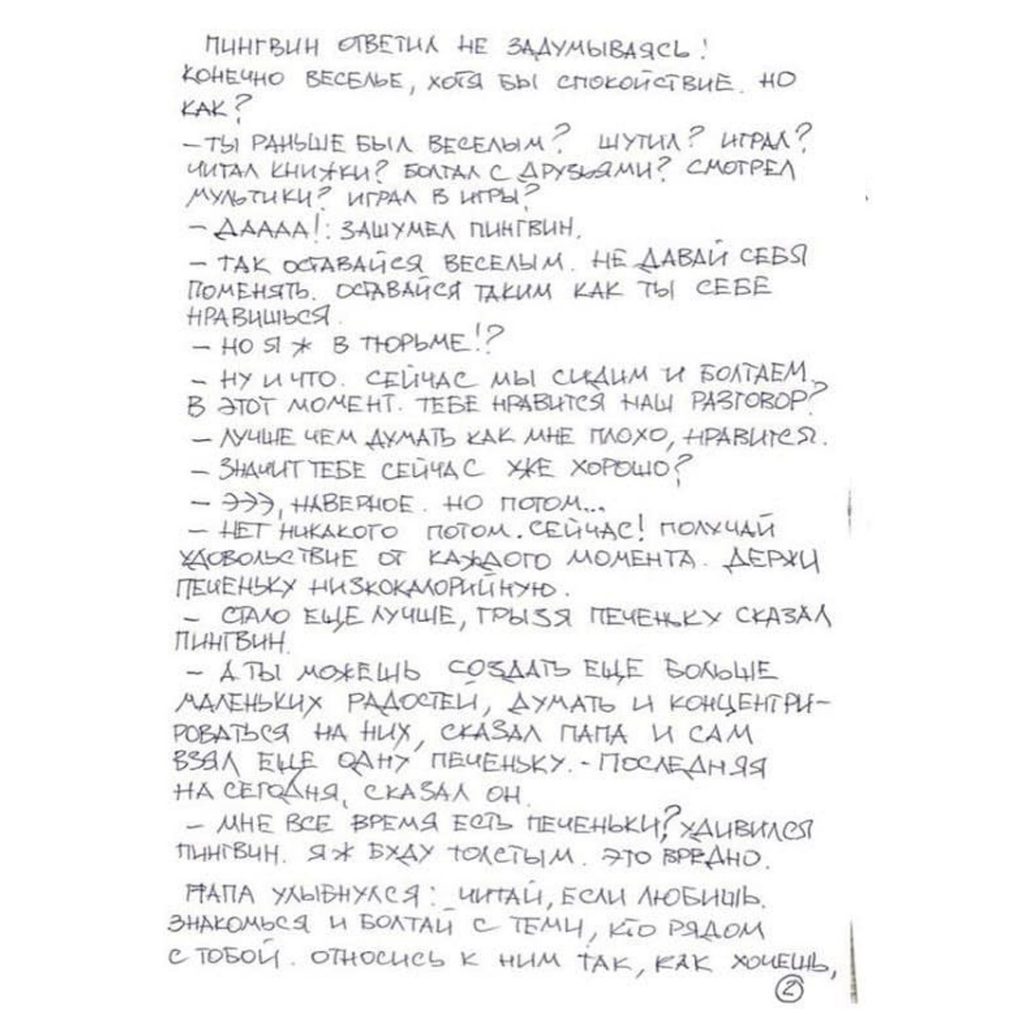 ПИНГВИН ОТВЕТИЛ НЕ ЗАДУМЫВАЯСЬ!
КОНЕЧНО ВЕСЕЛЬЕ, ХОТЯ БЫ СПОКОЙСТВИЕ. НО
КАК?
– ТЫ РАНЬШЕ БЫЛ ВЕСЕЛЫМ? ШУТИЛ? ИГРАЛ?
ЧИТАЛ КНИЖКИ? БОЛТАЛ С ДРУЗЬЯМИ? СМОТРЕЛ
МУЛЬТИКИ? ИГРАЛ В ИГРЫ?
– ДАААА!: ЗАШУМЕЛ ПИНГВИН.
– ТАК ОСТАВАЙСЯ ВЕСЕЛЫМ. НЕ ДАВАЙ СЕБЯ
ПОМЕНЯТЬ. ОСТАВАЙСЯ ТАКИМ КАК ТЫ СЕБЕ
НРАВИШЬСЯ.
– НО Я Ж В ТЮРЬМЕ!?
– НУ И ЧТО. СЕЙЧАС МЫ СИДИМ И БОЛТАЕМ.
В ЭТОТ МОМЕНТ. ТЕБЕ НРАВИТСЯ НАШ РАЗГОВОР?
– ЛУЧШЕ ЧЕМ ДУМАТЬ КАК МНЕ ПЛОХО, НРАВИТСЯ.
– ЗНАЧИТ ТЕБЕ СЕЙЧАС УЖЕ ХОРОШО?
– ЭЭЭ, НАВЕРНОЕ. НО ПОТОМ...
– НЕТ НИКАКОГО ПОТОМ. СЕЙЧАС! ПОЛУЧАЙ
УДОВОЛЬСТВИЕ ОТ КАЖДОГО МОМЕНТА. ДЕРЖИ
ПЕЧЕНЬКУ НИЗКОКАЛОРИЙНУЮ.
– СТАЛО ЕЩЕ ЛУЧШЕ, ГРЫЗЯ ПЕЧЕНЬКУ СКАЗАЛ
ПИНГВИН.
– А ТЫ МОЖЕШЬ СОЗДАТЬ ЕЩЕ БОЛЬШЕ
МАЛЕНЬКИХ РАДОСТЕЙ, ДУМАТЬ И КОНЦЕНТРИ-
РОВАТЬСЯ НА НИХ, СКАЗАЛ ПАПА И САМ
ВЗЯЛ ЕЩЕ ОДНУ ПЕЧЕНЬКУ. - ПОСЛЕДНЯЯ
НА СЕГОДНЯ, СКАЗАЛ ОН.
– МНЕ ВСЕ ВРЕМЯ ЕСТЬ ПЕЧЕНЬКИ? УДИВИЛСЯ
ПИНГВИН. Я Ж БУДУ ТОЛСТЫМ. ЭТО ВРЕДНО.
ПАПА УЛЫБНУЛСЯ: ЧИТАЙ, ЕСЛИ ЛЮБИШЬ.
ЗНАКОМЬСЯ И БОЛТАЙ С ТЕМИ, КТО РЯДОМ
С ТОБОЙ. ОТНОСИСЬ К НИМ ТАК, КАК ХОЧЕШЬ,
2